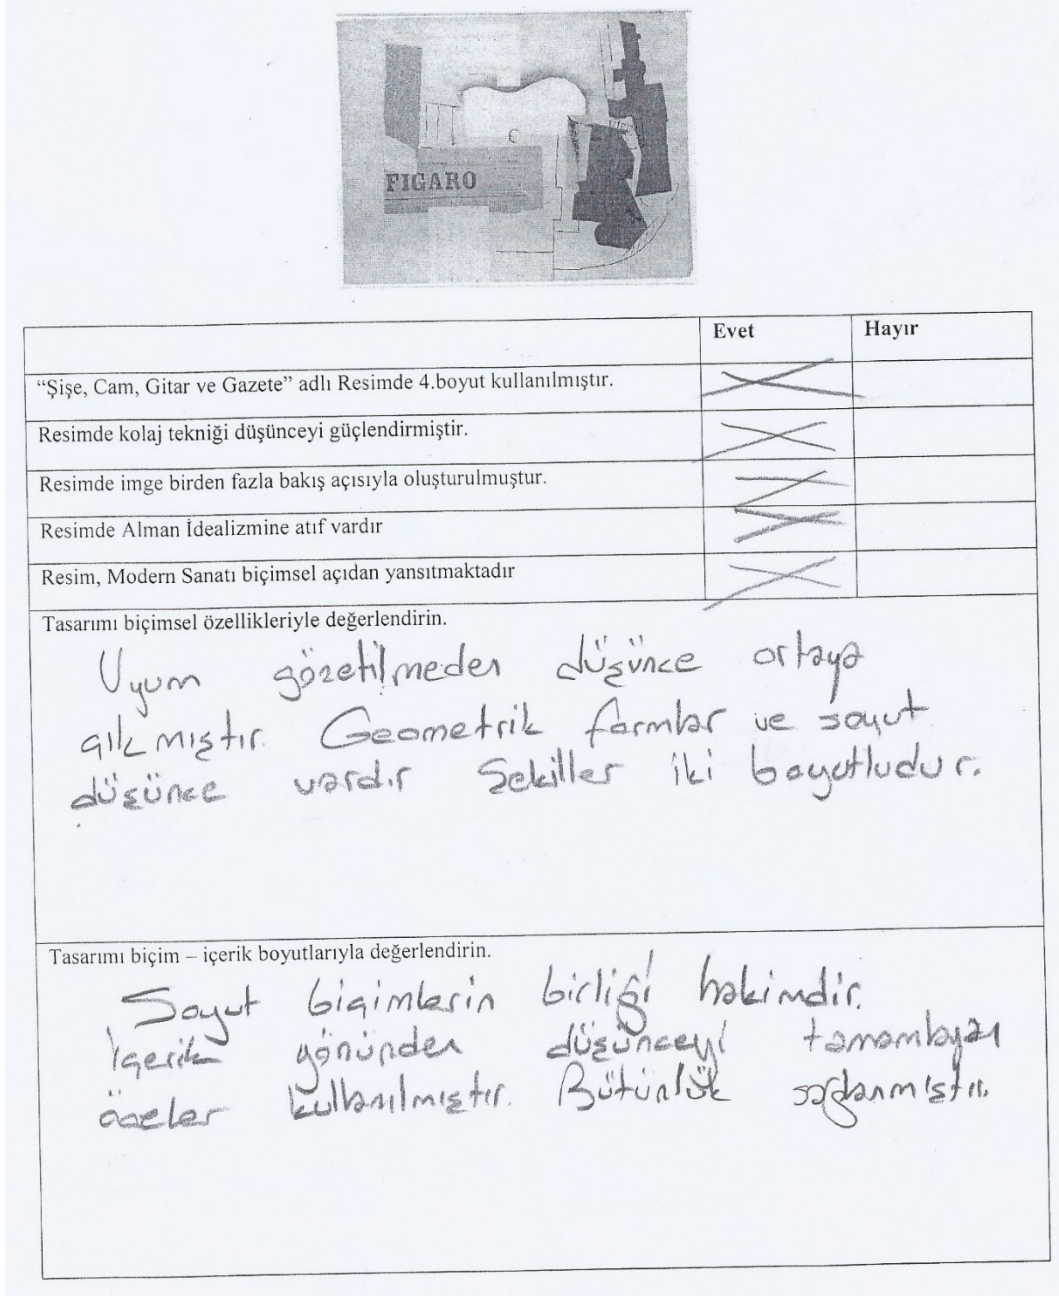 FIGARO
Evet Hayır
“Şişe, Cam, Gitar ve Gazete” adlı Resimde 4.boyut kullanılmıştır.
Resimde kolaj tekniği düşünceyi güçlendirmiştir.
Resimde imge birden fazla bakış açısıyla oluşturulmuştur.
Resimde Alman İdealizmine atıf vardır
Resim, Modern Sanatı biçimsel açıdan yansıtmaktadır
Tasarımı biçimsel özellikleriyle değerlendirin.
Uyum gözetilmeden düşünce ortaya
çıkmıştır. Geometrik formlar ve soyut
düşünce vardır Şekiller iki boyutludur.
Tasarımı biçim – içerik boyutlarıyla değerlendirin.
Soyut biçimlerin birliği hakimdir.
İçerik yönünden düşünceyi tamamlayan
ögeler kullanılmıştır. Bütünlük sağlanmıştır.